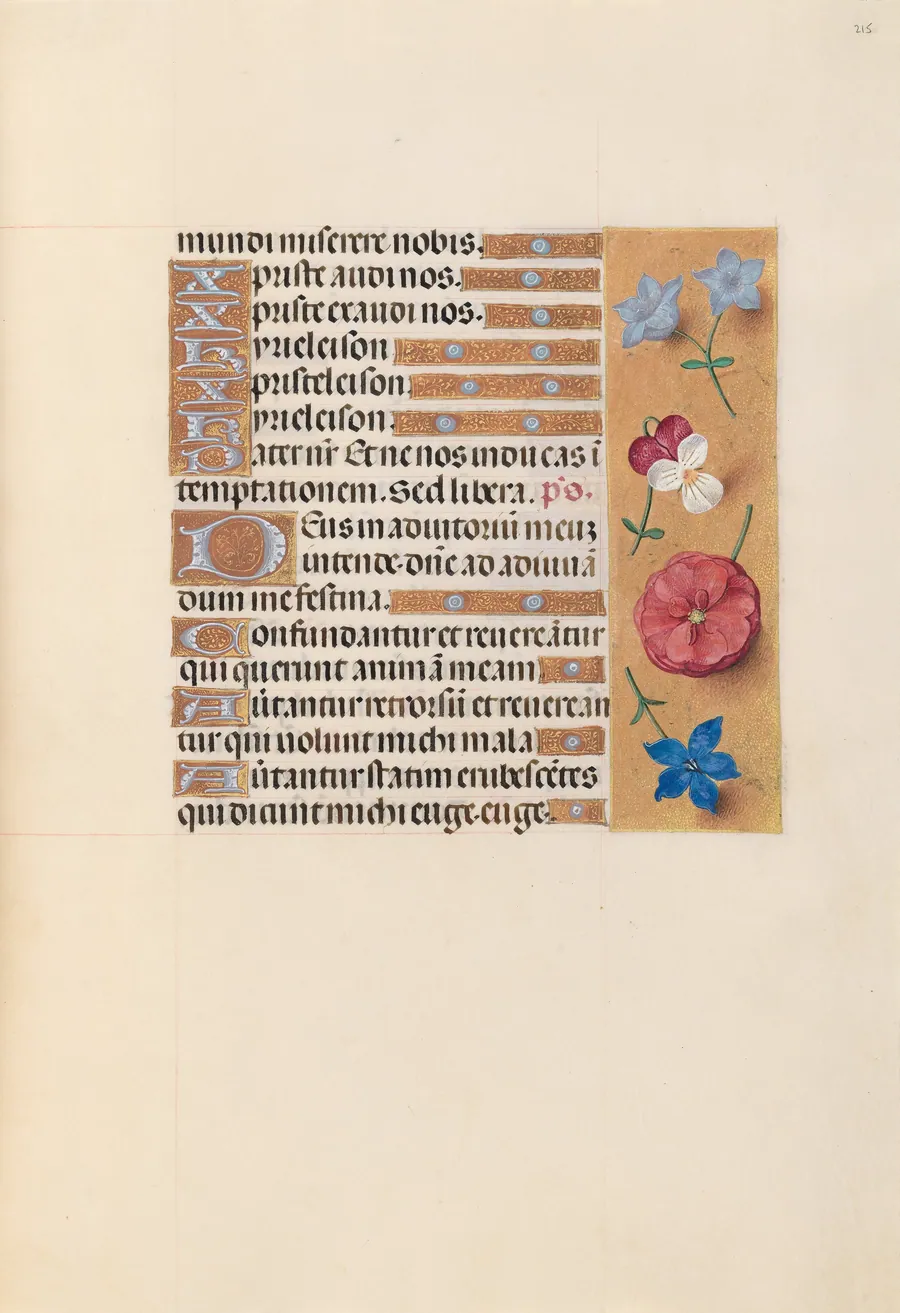 215
mundi miserere nobis.
Xpriste audi nos.
Xpriste exaudi nos.
Kyrieleison
Xpristeleison.
Kyrieleison.
Pater nr̄ Et ne nos inducas ī
temptationem. Sed libera. p̄s.
Deus in adiutoriū meuʒ
intende. dn̄e ad adiuuā
dum me festina.
Confundantur et reuereātur
qui querunt animā meam
Au̅tantur retrorsū et reuerean
tur qui uolunt michi mala
Au̅tantur statim erubescētes
qui dicunt michi euge. euge.